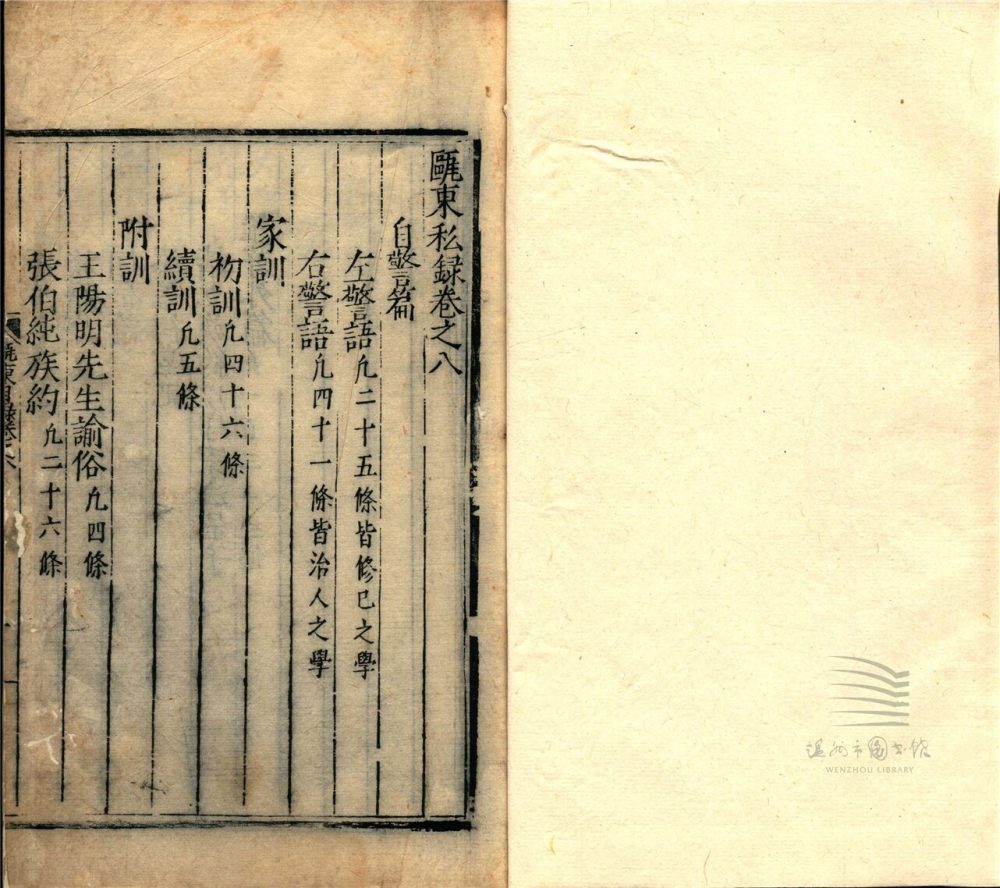 甌東私録卷之八
自警篇
左警語凢二十五條皆修已之學
右警語凢四十一條皆治人之學
家訓
初訓凢四十六條
續訓凢五條
附訓
王陽明先生諭俗凢四條
張伯純族約凢二十六條
溫州市圖书馆
WENZHOU LIBRARY